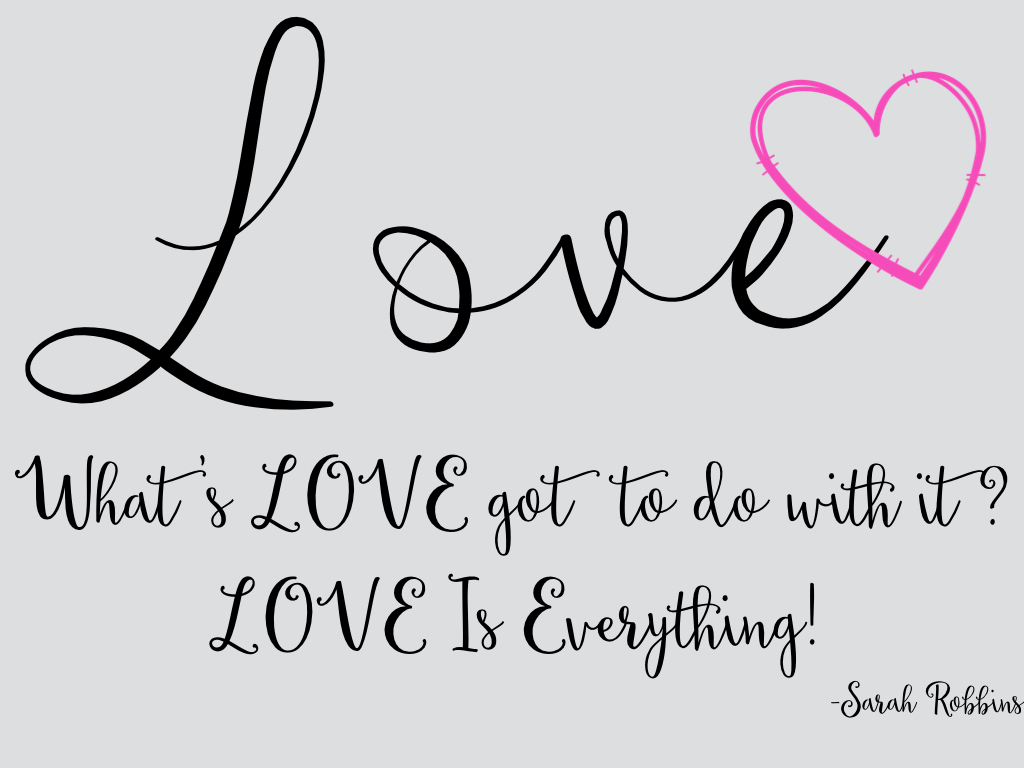 Love
What's LOVE got to do with it?
LOVE Is Everything!
-Sarah Robbins